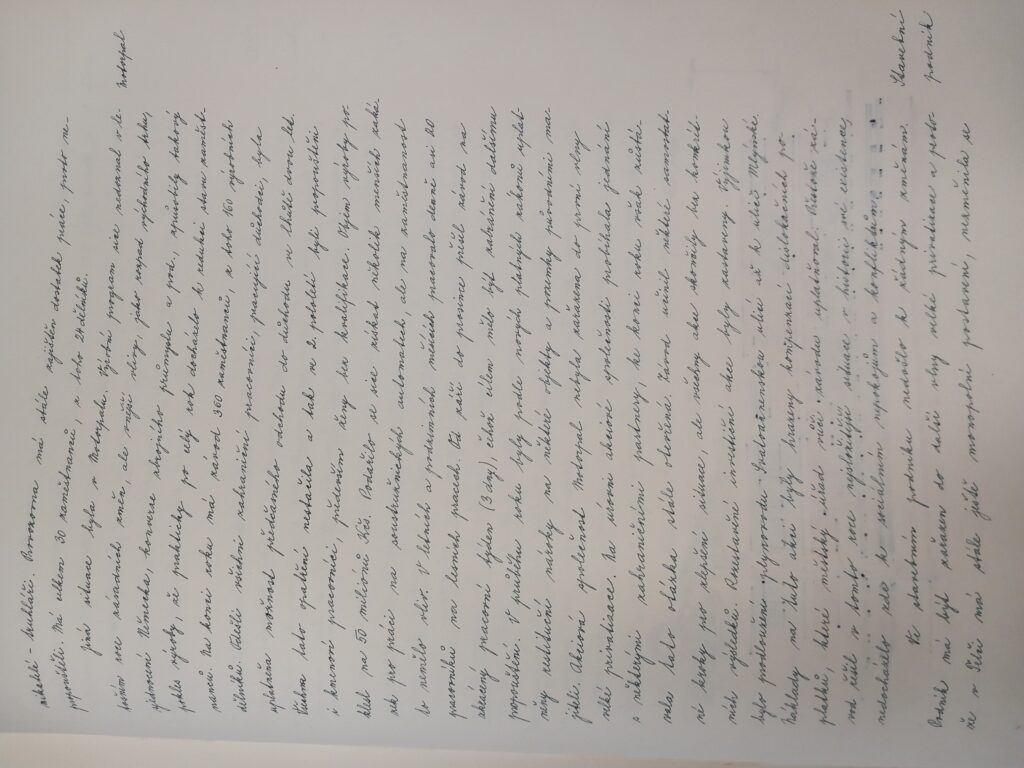 nikoliž - truhláři. Provozovna má stále zajištěn dostatek práce, proto ne-
propouštěli. Má celkem 30 zaměstnanců, z toho 24 dělníků.
Jiná situace byla v Motorpalu. Výrobní program sice nedoznal v le- Motorpal
tošním roce zásadních změn, ale vnější vlivy, jako rozpad východního trhu,
sjednocení Německa, konverze zbrojního průmyslu a pod., způsobily takový
pokles výroby, že prakticky po celý rok docházelo k redukci stavu zaměst-
nanců. Na konci roku má závod 360 zaměstnanců, z toho 160 výrobních
dělníků. Odešli všichni zahraniční pracovníci, pracující důchodci, byla
uplatněna možnost předčasného odchodu do důchodu ve lhůtě dvou let.
Všechna tato opatření nestačila a tak ve 2. pololetí byli propouštěni
i kmenoví pracovníci, především ženy bez kvalifikace. Objem výroby po-
klesl na 50 milionů Kčs. Podařilo se sice získat několik menších zaká-
zek pro práci na soustružnických automatech, ale na zaměstnanost
to nemělo vliv. V letních a podzimních měsících pracovalo denně asi 20
pracovníků na lesních pracích. Od září do prosince přešel závod na
zkrácený pracovní týden (3 dny), čehož cílem mělo být zabránění dalšímu
propouštění. V průběhu roku byly podle nových platných zákonů uplat-
něny restituční nároky na některé objekty a pozemky původními ma-
jiteli. Akciová společnost Motorpal nebyla zařazena do první vlny
velké privatizace. Na úrovni akciové společnosti probíhala jednání
s některými zahraničními partnery, ke konci roku však zůstá-
vala tato otázka stále otevřená. Závod učinil některé samostat-
né kroky pro zlepšení situace, ale všechny akce skončily bez konkrét-
ních výsledků. Rozestavěné investiční akce byly zastaveny. Výjimkou
bylo prodloužení plynovodu Hradozámskou ulicí až k ulici Mlýnské.
Náklady na tuto akci byly hrazeny kompenzací dislokačních po-
platků, které městský úřad vůči závodu uplatňoval. Přestože zá-
vod zažil v tomto roce nejsložitější situace v historii své existence,
nedocházelo zde k sociálním nepokojům a konfliktům.
Ve stavebním podniku nedošlo k žádným změnám. Stavební
Podnik má být zařazen do další vlny velké privatizace a proto- podnik
že v Telči má stále ještě monopolní postavení, nezměnila se